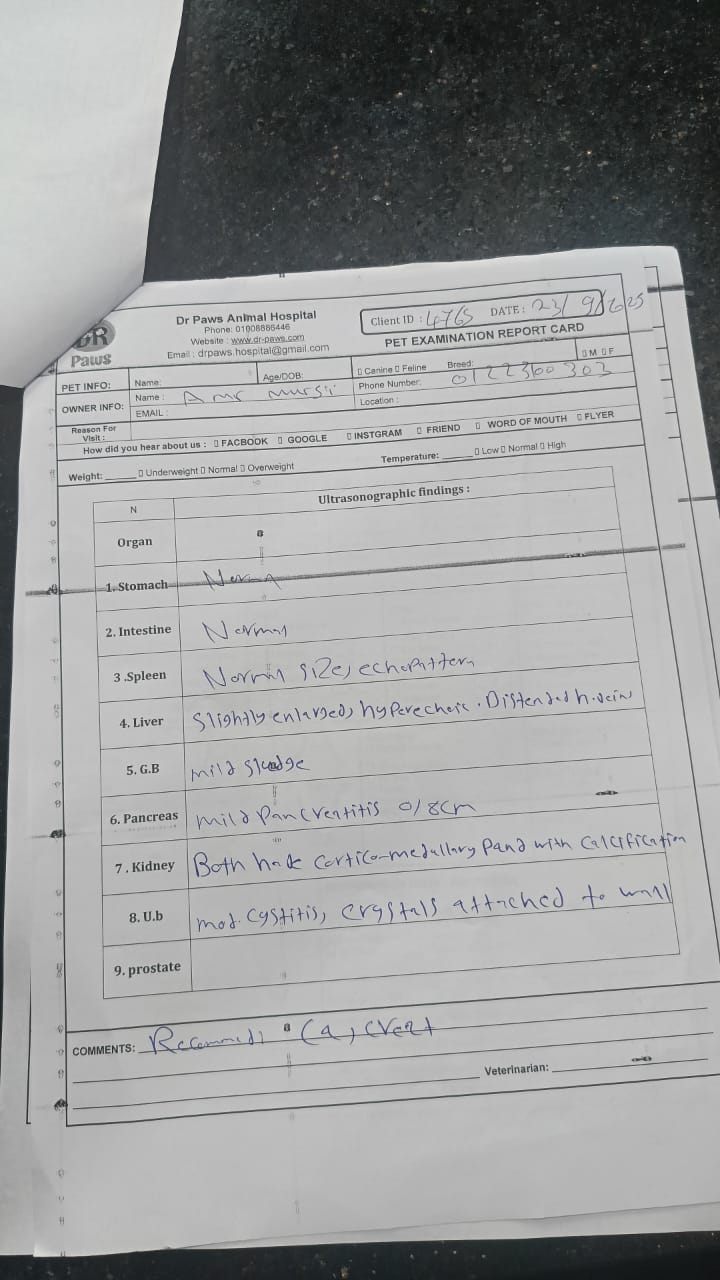 DR
Paws
Dr Paws Animal Hospital
Phone: 01008886446
Website : www.dr-paws.com
Email : drpaws.hospital@gmail.com
Client ID : 4765 DATE: 23/9/2025
PET EXAMINATION REPORT CARD
PET INFO: Name: Age/DOB: Canine Feline Breed: M F
OWNER INFO: Name : Amr Mursi Phone Number: 01223100303
EMAIL : Location :
Reason For
Visit :
How did you hear about us : FACBOOK GOOGLE INSTGRAM FRIEND WORD OF MOUTH FLYER
Weight: ______ Underweight Normal Overweight Temperature: ______ Low Normal High
N Ultrasonographic findings :
Organ
1. Stomach Normal
2. Intestine Normal
3 .Spleen Normal size, echopattern
4. Liver Slightly enlarged, hyperechoic. Distended h.vein
5. G.B mild sludge
6. Pancreas mild Pancreatitis 0/8cm
7. Kidney Both have Cortico-medullary Band with Calcification
8. U.b mod. Cystitis, crystals attached to wall
9. prostate
COMMENTS: Recommed: Ca, Creat
Veterinarian: